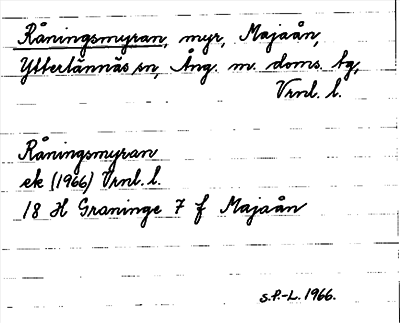 Råningsmyran, myr, Majaån,
Ytterlännäs sn, Ång. m. doms. tg,
Vrnl. l.
Råningsmyran
ek (1966) Vrnl. l.
18 H Graninge 7 f Majaån
S.P.-L. 1966.